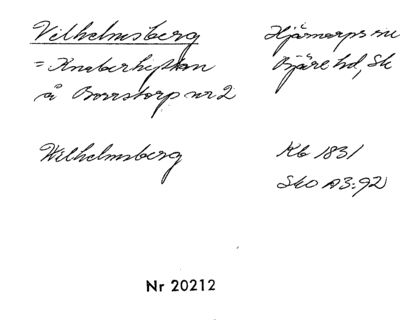 Vilhelmsberg Hjärnarps sn
= Knaberhyttan Bjäre hd, Sk
å Boarstorp nr 2
Wilhelmsberg Kb 1831
SkO A3:92
Nr 20212